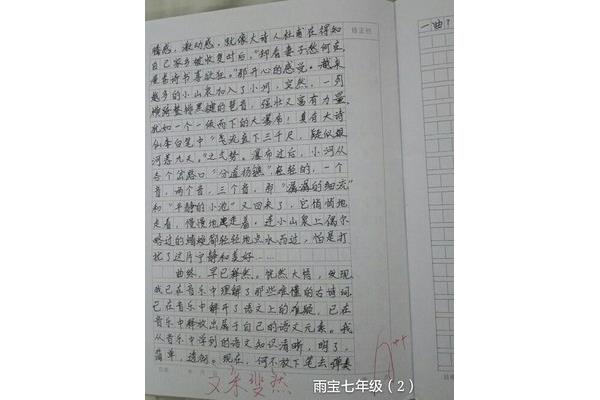 腾感，激动感，就像大诗人杜甫在得知
自己家乡被收复时后，"却看妻子愁何在
漫卷诗书喜欲狂。"那开心的感觉。越来
越多的小山泉加入了小河，突然，一列
横跨整排黑键的琶音，强壮又富有力量，
犹如一个一倾而下的大瀑布！具有大诗
仙李白笔中"飞流直下三千尺，疑似银
河落九天。"之气势。瀑布过后，小河从
各个岔路口"分道扬镳"轻轻的，一个
音，两个音，三个音，那"潺潺的细流"
和"平静的小池"又回来了，它悄悄地
走着，慢慢地走着，连小山泉上偶尔
略过的蜻蜓都轻轻地点水而过，怕是打
扰了这片宁静和美好……
曲终，早已释然。恍然大悟，发现
我已在音乐中理解了那些难懂的古诗词
已在音乐中解开了语文上的难疑，已在
音乐中释放出属于自己的语文元素。我
从音乐中学到的语文知识清晰，明了，
简单，透彻。现在，何不放下笔去弹奏
一曲？
文采斐然
A++
雨宝七年级（2）